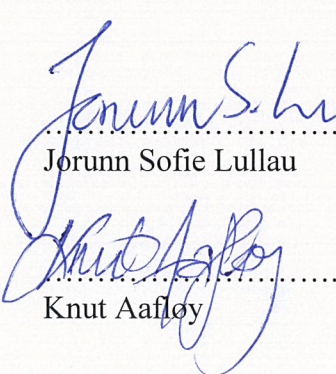 Jorunn S. Lu
Jorunn Sofie Lullau
Knut Aafløy
Knut Aafløy